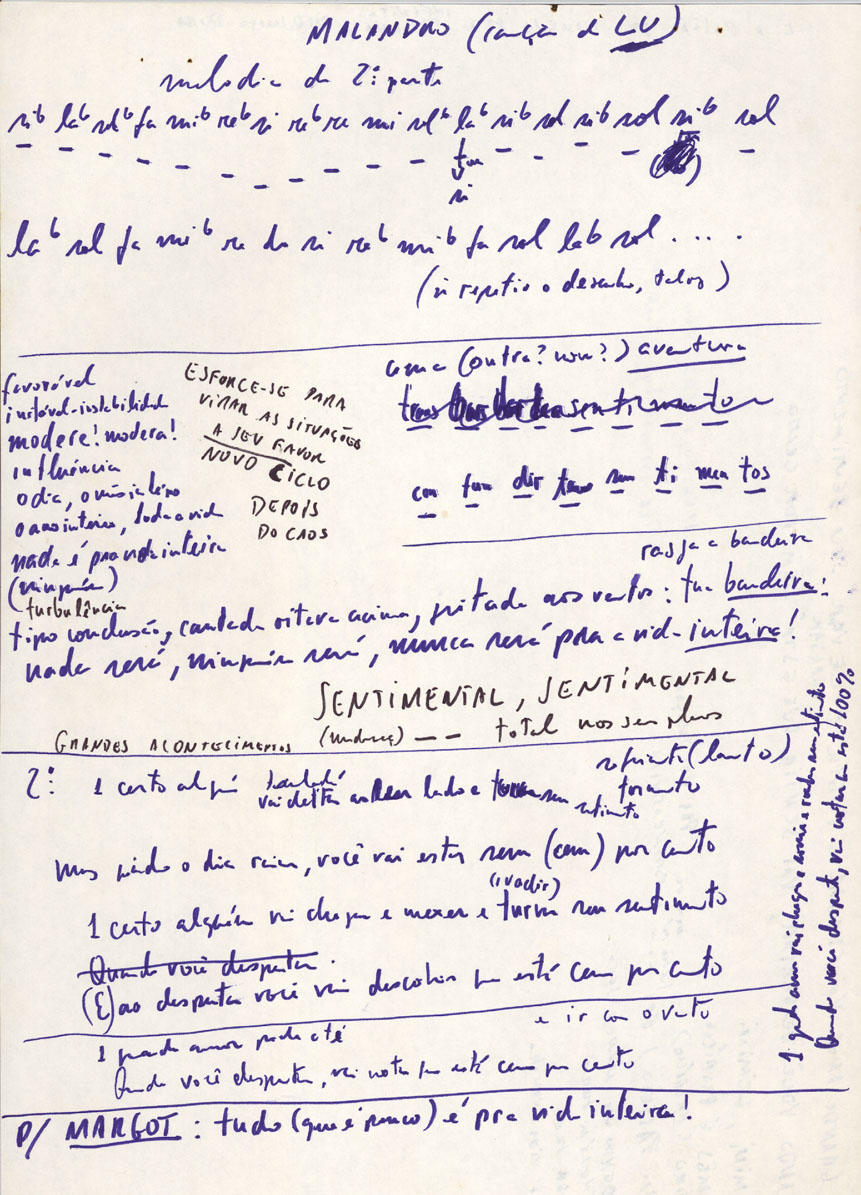 MALANDRO (canção de LU)
melodia da 2ª parte
sib lab solb fa mib reb si reb re mi solb lab sib sol sib sol sib sol
si
lab sol fa mib re do si reb mib fa sol lab sol . . . .
(si repetir o desenho, talvez)
uma (outra? nova?) aventura
sentimento
con fun dir teus sen ti men tos
favorável
instável-instabilidade
modere! modera!
influência
o dia, o mês inteiro
o ano inteiro, toda a vida
nada é pra vida inteira
(ninguém)
turbulência
ESFORCE-SE PARA
VIRAR AS SITUAÇÕES
A SEU FAVOR
NOVO CICLO
DEPOIS
DO CAOS
rasga a bandeira
tipo conclusão, cantada oitava acima, gritada aos ventos: tua bandeira!
nada será, ninguém será, nunca será pra a vida inteira!
SENTIMENTAL, SENTIMENTAL
(mudança) — — total nos seus planos
GRANDES ACONTECIMENTOS
2ª: 1 certo alguém vai deitar ao seu lado e seu sentimento
Mas quando o dia raiar, você vai estar sem (cem) por cento
(invadir)
1 certo alguém vai chegar e mexer e turvar seu sentimento
Quando você despertar.
(E) ao despertar você vai descobrir que está cem por cento
e ir com o vento
1 grande amor pode até
Quando você despertar, vai notar que está cem por cento
P/ MARGOT: tudo (que é pouco) é pra vida inteira!
1 grande amor vai chegar e seu sentimento
Quando você despertar, vai notar que está 100%